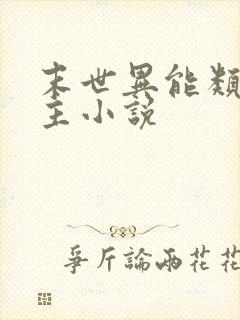 末世異能類女
主小説
爭斤論兩花花